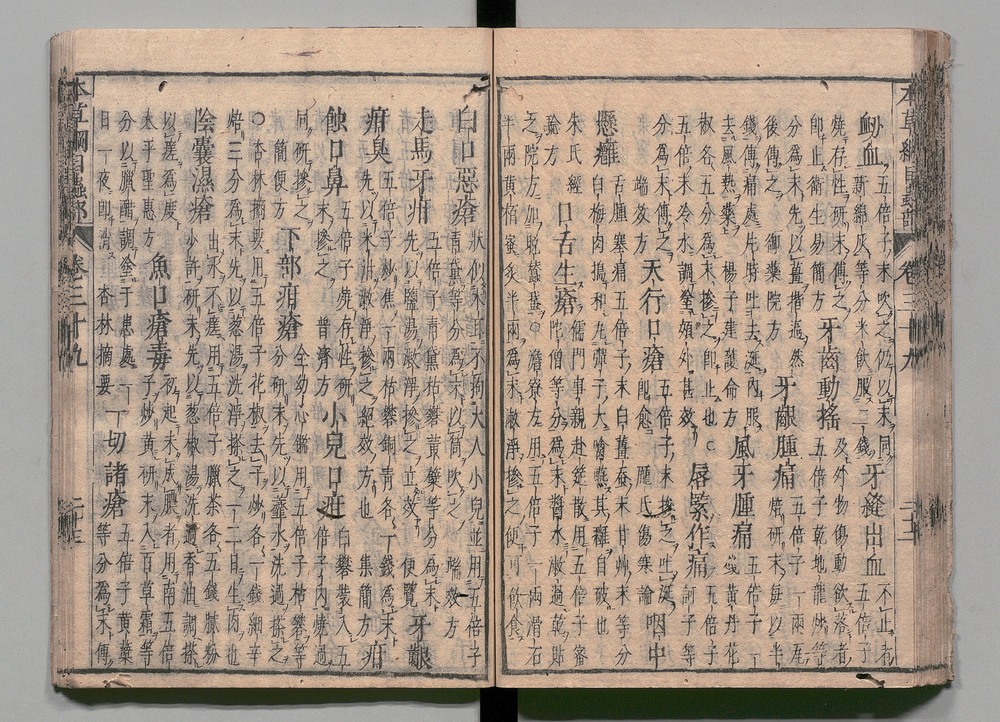 本草綱目蟲部 卷三十九
衂血 五倍子末吹之仍以末同
新綿灰等分米飲服二錢 牙縫出血 不止者五倍子
燒存性研末傅之
即止衛生易簡方 牙齒動搖 及外物傷動欲落者
五倍子乾地龍炒等
分爲末先以薑揩過然
後傅之 御藥院方 牙齦腫痛 五倍子一兩瓦
焙研末每以半
錢傅痛處片時吐去涎內服
去風熱藥 楊子建護命方 風牙腫痛 五倍子一錢黃丹花
椒各五分爲末摻之即止也
五倍末冷水調塗頰外甚效 唇緊作痛 五倍子訶子等
分爲末傅之
端效方 天行口瘡 五倍子末摻之吐涎
即愈 龐氏傷寒論 咽中
懸癰 舌腫塞痛五倍子末白殭蠶末甘艸末等分
白梅肉搗和丸彈子大噙嚥其癰自破也
朱氏經
驗方 口舌生瘡 儒門事親赴筵散用五倍子蜜
陀僧等分爲末漿水漱過乾貼
之院方加晚蠶蛾○澹寮方用五倍子一兩滑石
半兩黃栢蜜炙半兩爲末漱淨摻之便可飲食
白口惡瘡 狀似木耳不拘大人小兒並用五倍子
青黛等分爲末以筒吹之 端效方
走馬牙疳 五倍子青黛枯礬黃蘗等分爲末
先以鹽湯漱淨摻之立效 便覽 牙齦
疳臭 五倍子炒焦一兩枯礬銅青各一錢爲末
先以米泔漱淨摻之絕效方也 集簡方 疳
蝕口鼻 五倍子燒存性研
末摻之 普濟方 小兒口疳 白礬裝入五
倍子內燒過
同研摻之
簡便方 下部疳瘡 全幼心鑑用五倍子枯礬等
分研末先以虀水洗過搽之
○杏林摘要用五倍子花椒去子炒各一錢細辛
焙三分爲末先以葱湯洗淨搽之一二日生肉也
陰囊濕瘡 出水不瘥用五倍子臘茶各五錢膩粉
少許研末先以葱椒湯洗過香油調搽
以瘥爲度
太平聖惠方 魚口瘡毒 初起未成膿者用南五倍
子炒黃研末入百草霜等
分以臘醋調塗于患處一
日一夜即消 杏林摘要 一切諸瘡 五倍子黃蘗
等分爲末傅
本草綱目蟲部 卷三十九